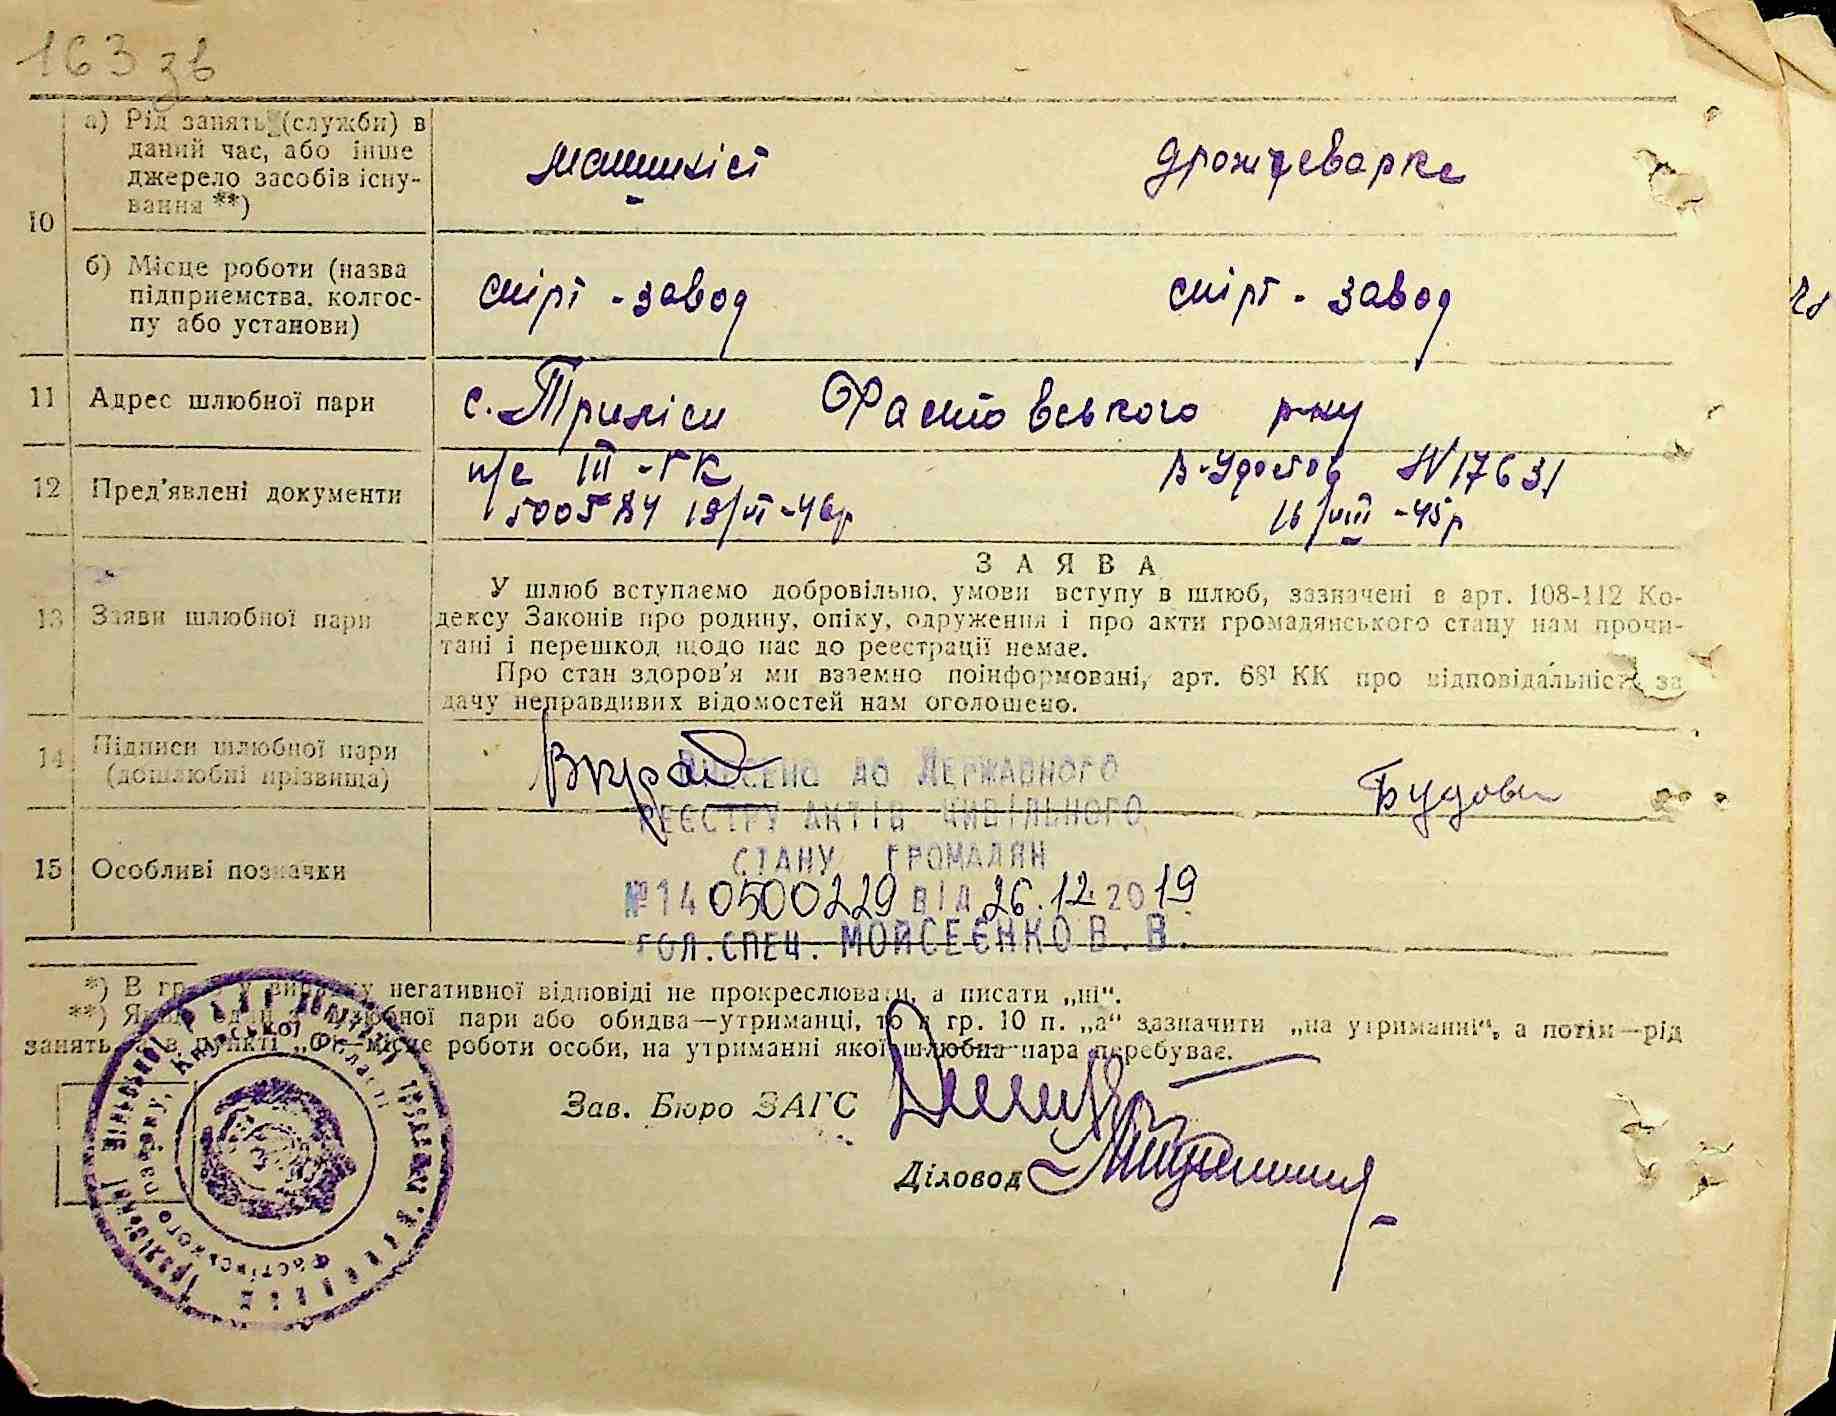 163 зв
10
а) Рід занять (служби) в
даний час, або інше
джерело засобів існу-
вання **)
машиніст
дрожеварка
б) Місце роботи (назва
підприємства, колгос-
пу або установи)
спірт-завод
спірт-завод
11 Адрес шлюбної пари
с. Триліси Фастовського р-ну
12 Пред'явлені документи
п/с III-ГК
19/VI-46р
N 17631
16/VIII-45р
13 Заяви шлюбної пари
ЗАЯВА
У шлюб вступаємо добровільно, умови вступу в шлюб, зазначені в арт. 108-112 Ко-
дексу Законів про родину, опіку, одруження і про акти громадянського стану нам прочи-
тані і перешкод щодо нас до реестрації немає.
Про стан здоров'я ми взаємно поінформовані, арт. 68¹ КК про відповідальність за
дачу неправдивих відомостей нам оголошено.
14 Підписи шлюбної пари
(дошлюбні прізвища)
Будова
ВНЕСЕНО ДО ДЕРЖАВНОГО
РЕЄСТРУ АКТІВ ЦИВІЛЬНОГО
СТАНУ ГРОМАДЯН
№ 140500229 ВІД 26.12.2019
ГОЛ. СПЕЦ. МОЙСЕЄНКО В. В.
15 Особливі позначки
*) В гр. у випадку негативної відповіді не прокреслювати, а писати „ні“.
**) Якщо один з шлюбної пари або обидва—утриманці, то в гр. 10 п. „а“ зазначити „на утриманні“, а потім—рід
занять, а в пункті „б“—місце роботи особи, на утриманні якої шлюбна пара перебуває.
Зав. Бюро ЗАГС
Діловод
Фастівського району, Київської області